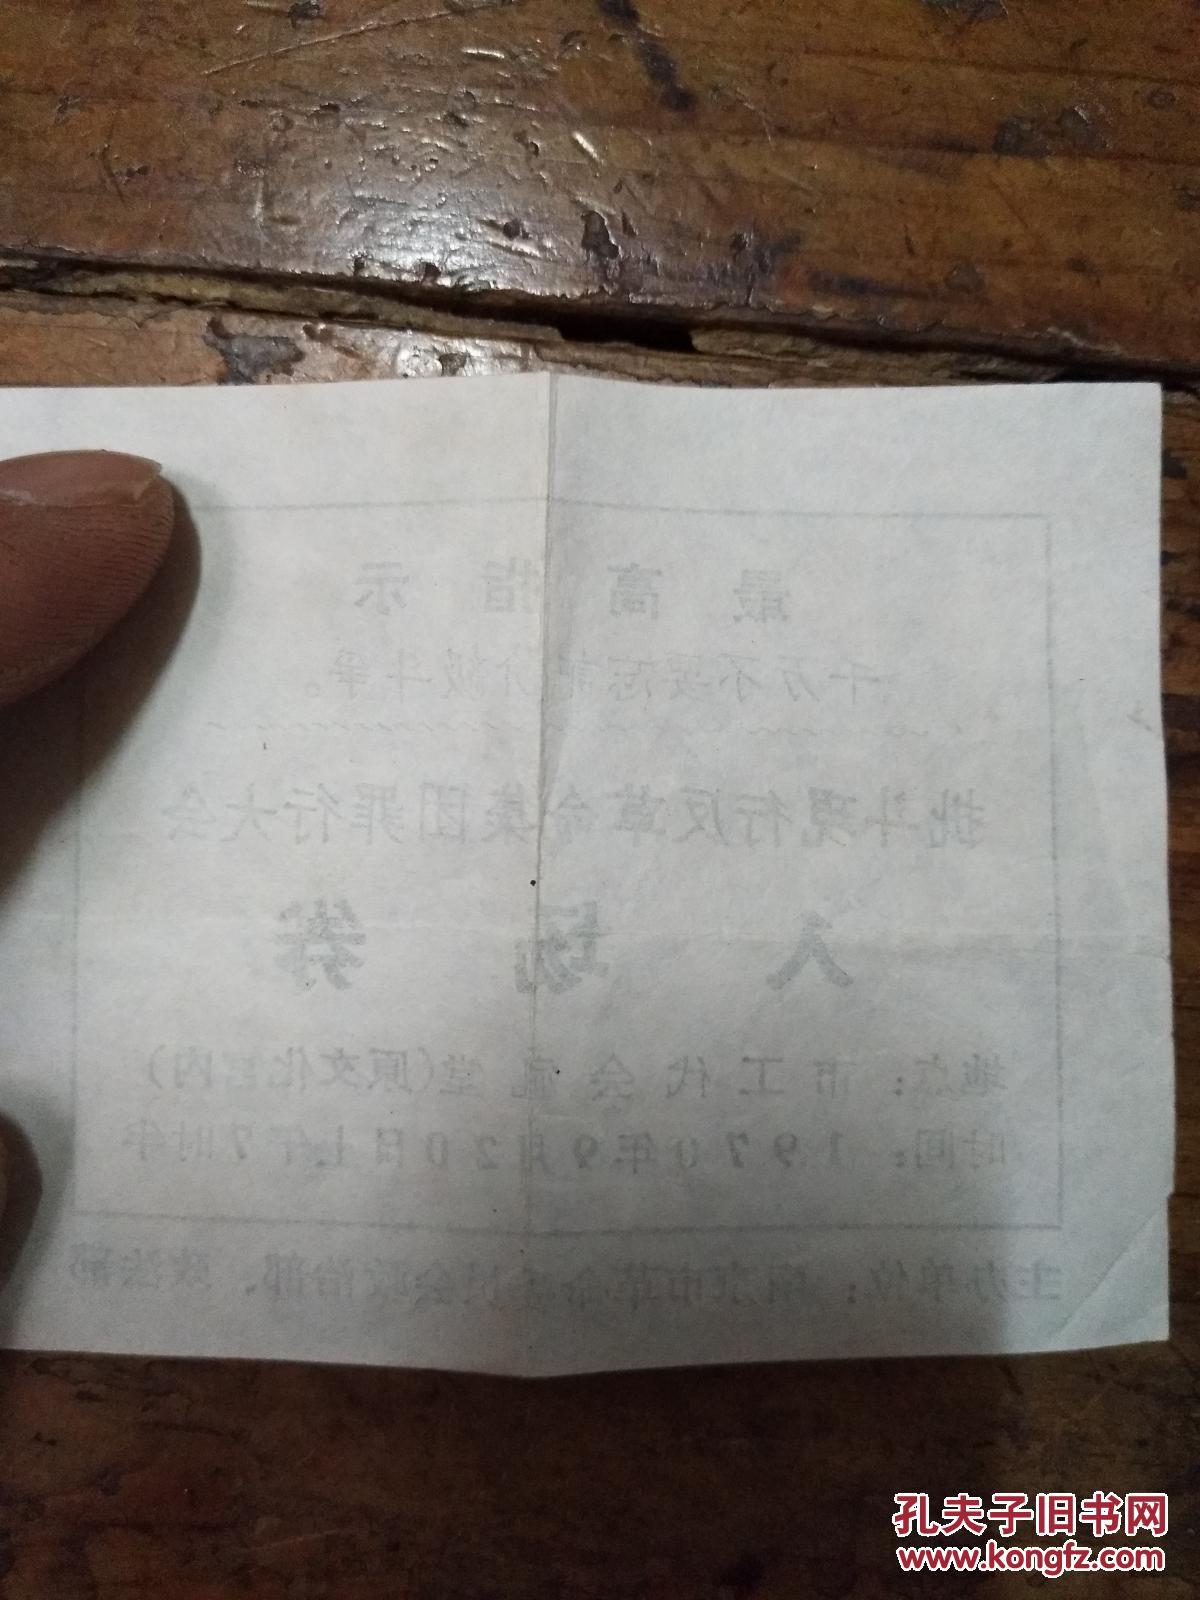 最高指示
千万不要忘記阶級斗爭。
批斗现行反革命集团罪行大会
入場券
地点：市工代会礼堂(原文化宮内)
时间：1970年9月20日上午7时半
主办单位：南京市革命委員会政治部、政法部
孔夫子旧书网
www.kongfz.com